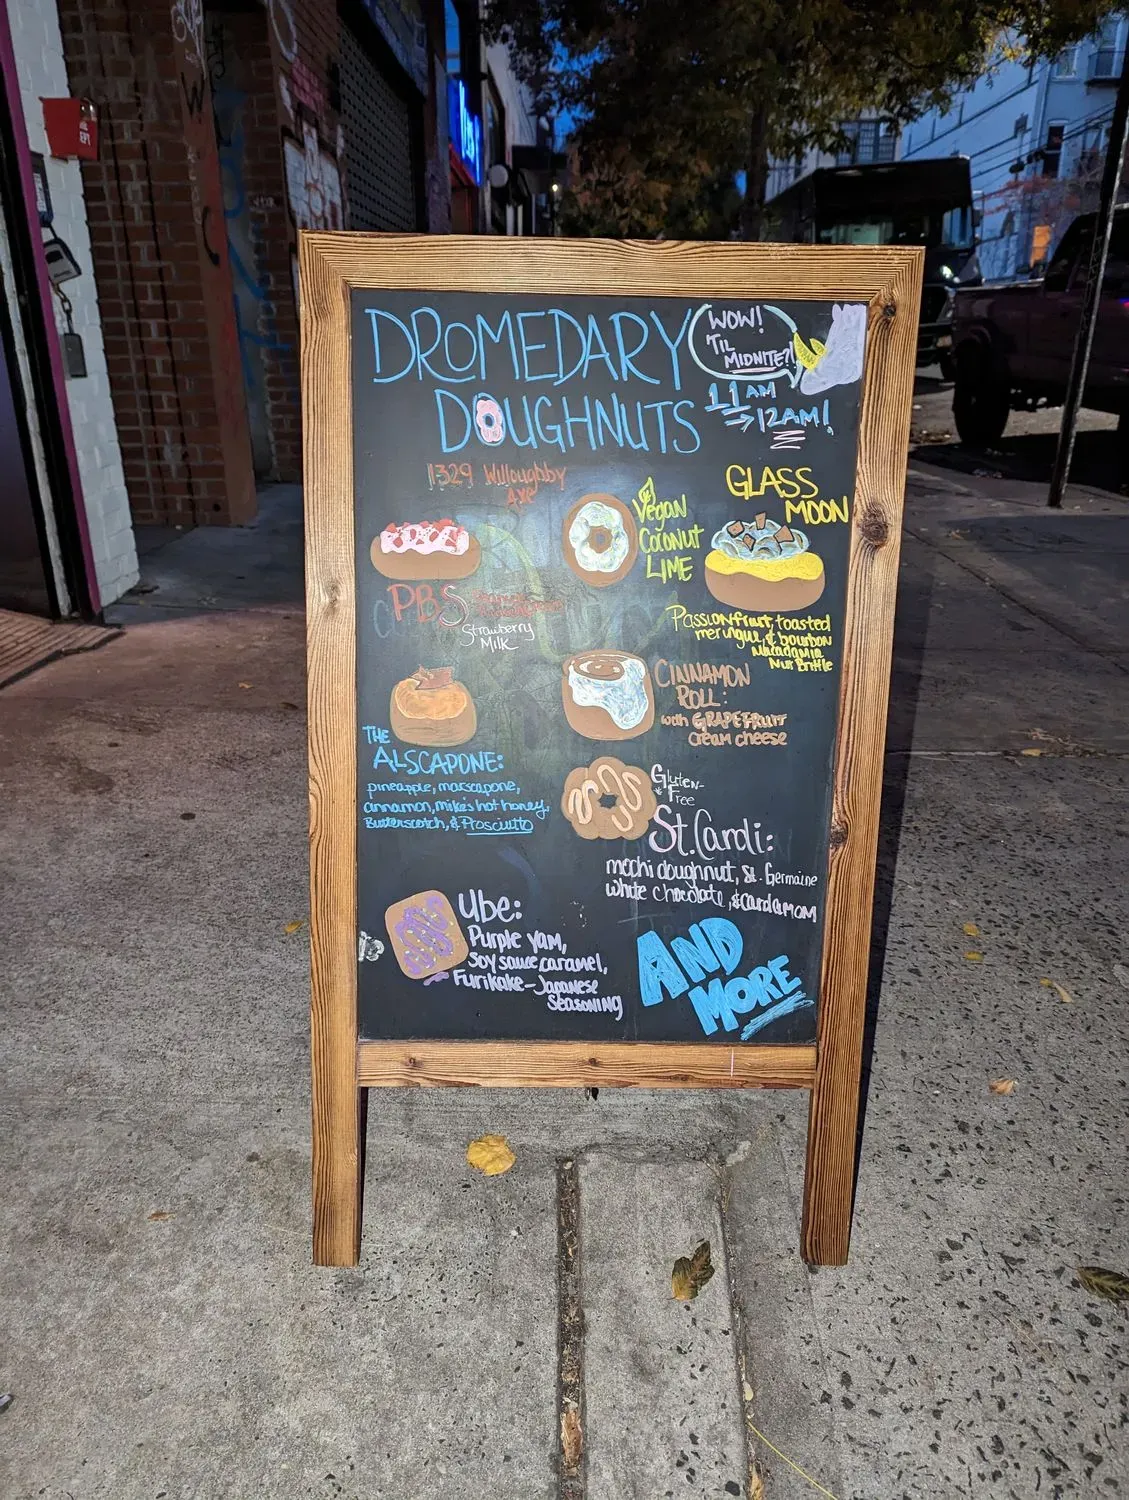 DROMEDARY
DOUGHNUTS
WOW!
'TIL
MIDNITE?!
11AM
12AM!
1329 Willoughby
AVE
Vegan
Coconut
LIME
GLASS
MOON
PBS
Strawberry
Milk
Passionfruit, toasted
meringue, & bourbon
Macadamia
Nut Brittle
THE
ALSCAPONE:
pineapple, marscapone,
cinnamon, mike's hot honey,
Butterscotch, & Prosciutto
CINNAMON
ROLL:
with GRAPEFRUIT
cream cheese
Gluten-
Free
St. Cardi:
mochi doughnut, St. Germaine
white chocolate, & cardamom
Ube:
Purple yam,
Soy sauce caramel,
Furikake-Japanese
Seasoning
AND
MORE